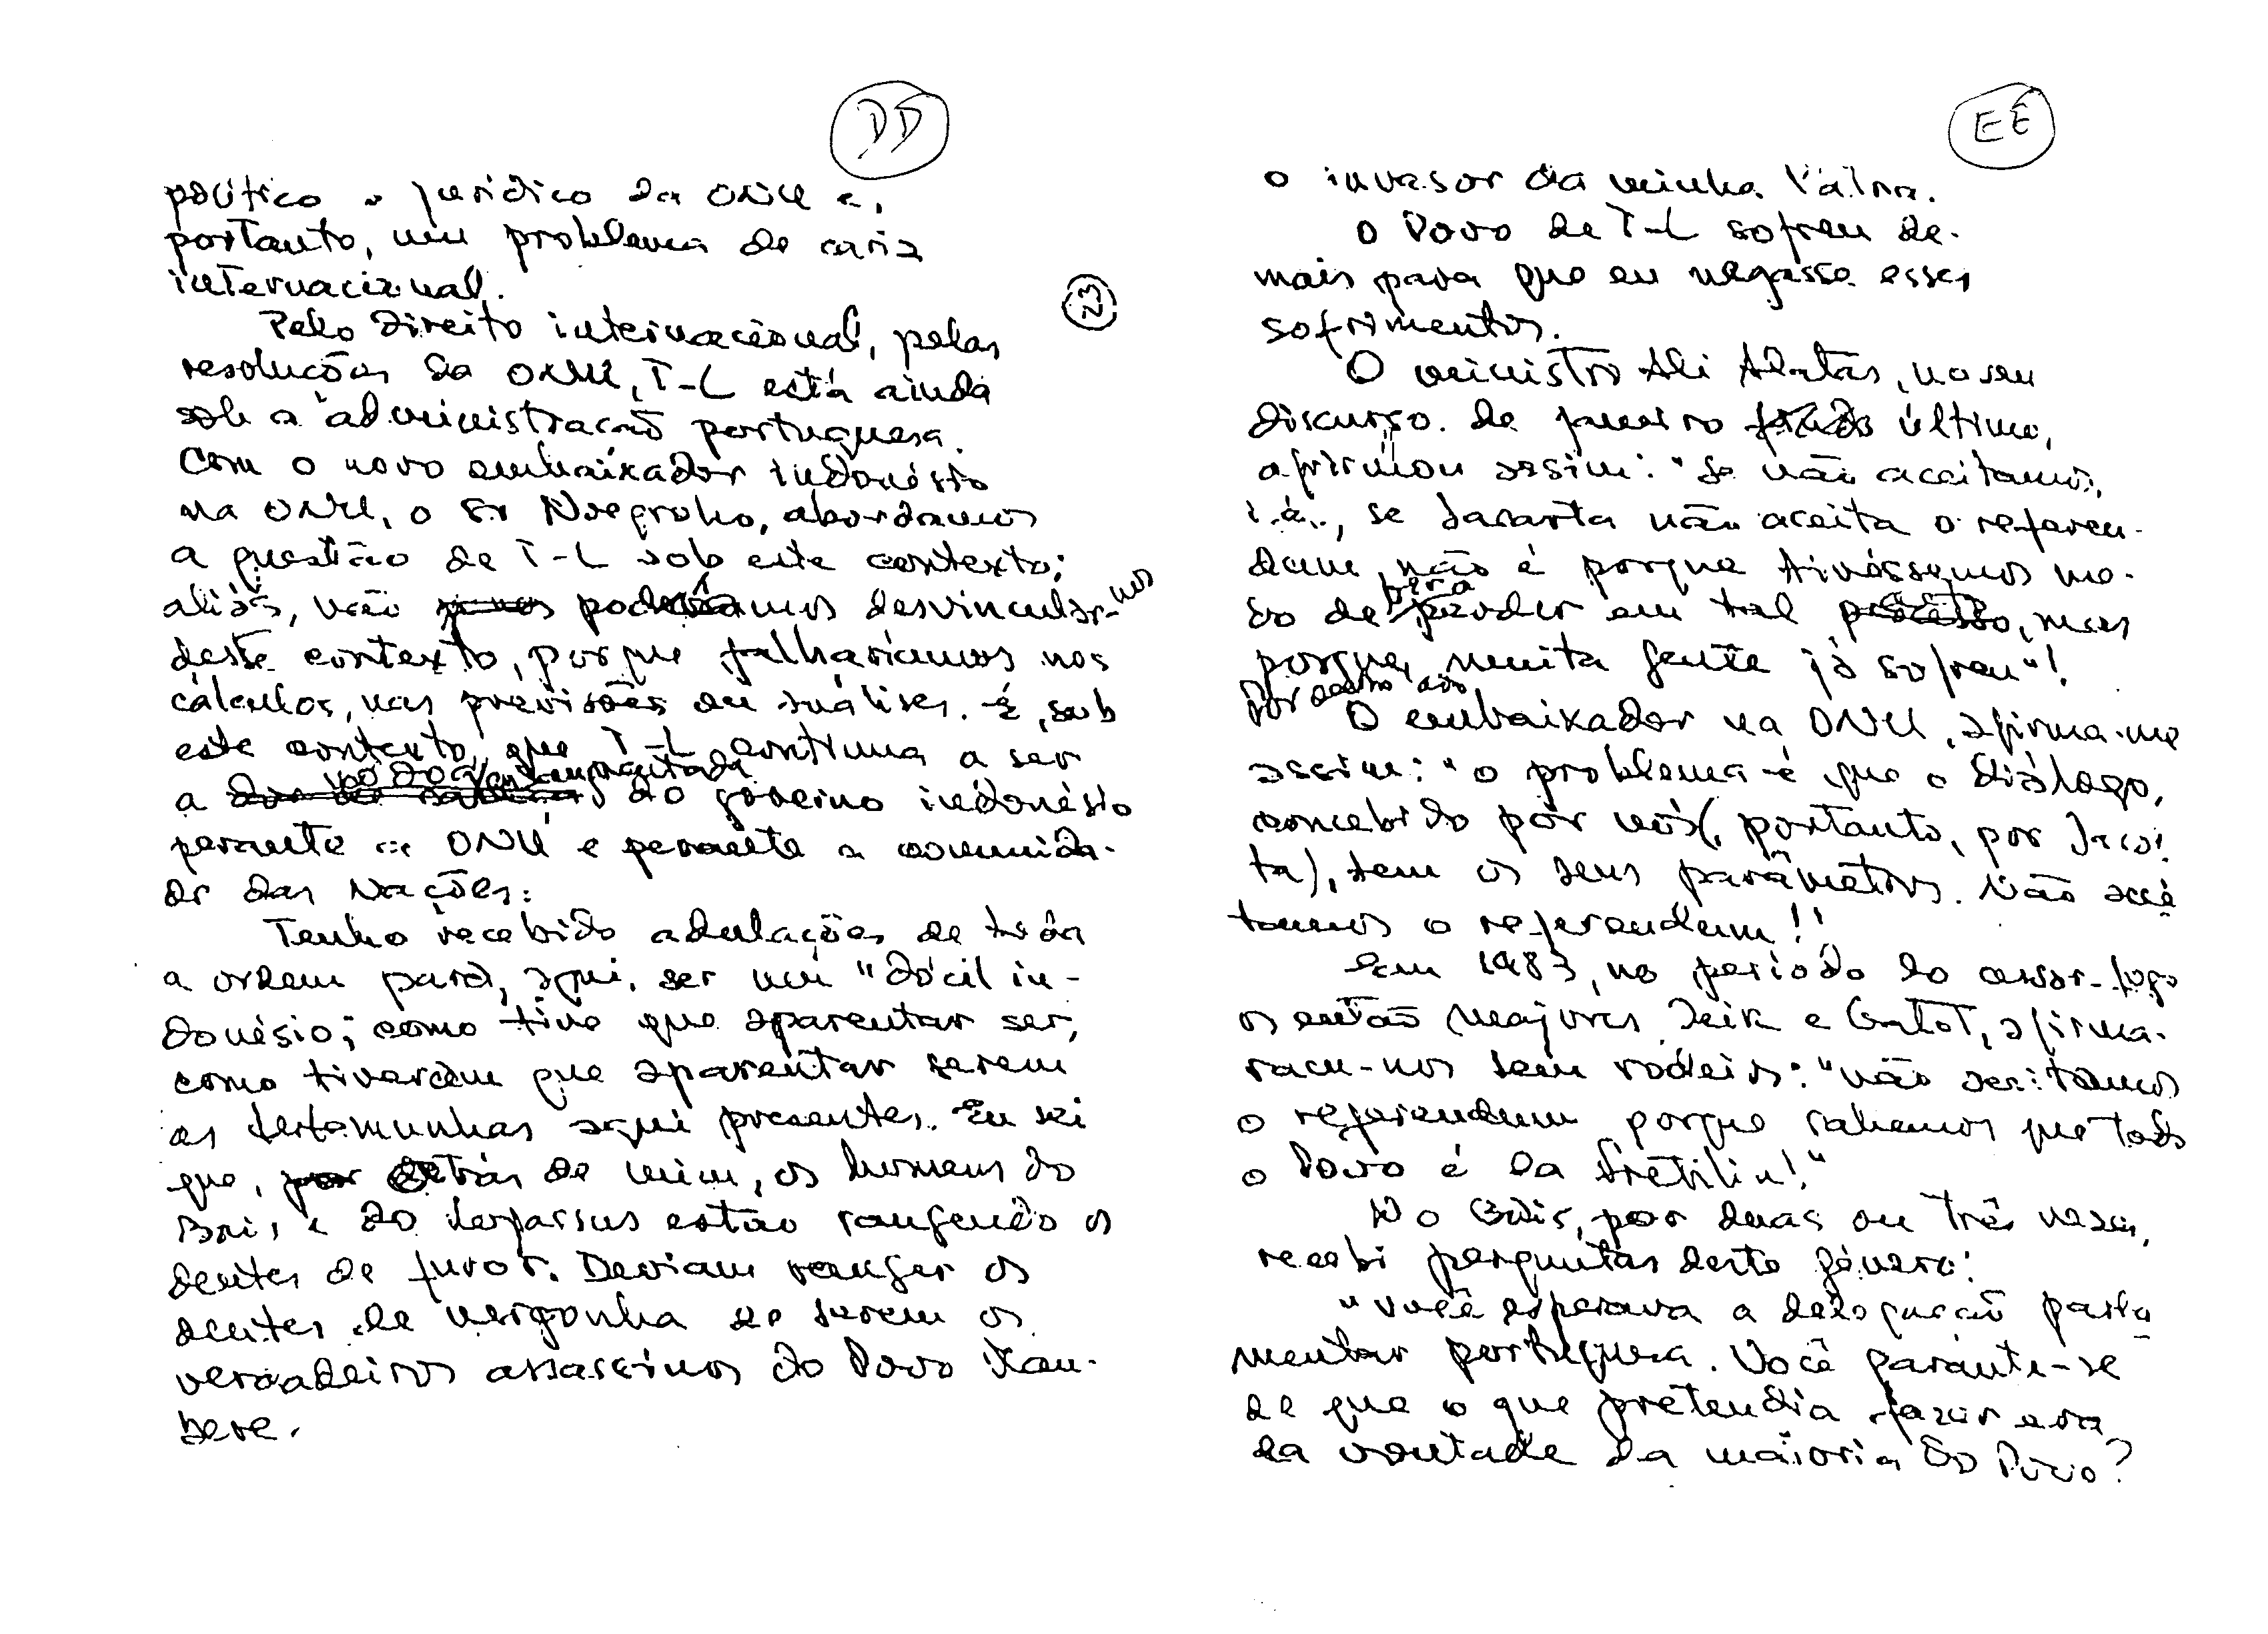 DD
político e jurídico da ONU e,
portanto, um problema de cariz
internacional.
23
Pelo Direito internacional, pelas
resoluções da ONU, T-L está ainda
sob a administração portuguesa.
Com o novo embaixador indonésio
na ONU, o Sr Noegroho, abordamos
a questão de T-L sob este contexto;
aliás, não podíamos desvincular-nos
deste contexto, porque falharíamos nos
cálculos, nas previsões ou análises. É, sob
este contexto, que T-L continua a ser
a do governo indonésio
perante a ONU e perante a comunida-
de das Nações.
Tenho recebido adulações de toda
a ordem para, aqui, ser um "dócil in-
donésio; como tive que aparentar ser,
como tiveram que aparentar serem
as testemunhas aqui presentes. Eu sei
que, detrás de mim, os homens do
Bais e do Kopassus estão rangendo os
dentes de furor. Deviam ranger os
dentes de vergonha de serem os
verdadeiros assassinos do Povo Mau-
bere.
EE
o invasor da minha Pátria.
O Povo de T-L sofreu de-
mais para que eu negasse esses
sofrimentos.
O ministro Ali Alatas, no seu
discurso de janeiro último,
afirmou assim: "se não aceitamos,
i.é., se Jacarta não aceita o referen-
dum, não é porque tivéssemos me-
do de perder em tal processo, mas
porque muita gente já sofreu"!
O embaixador na ONU, afirma-me
assim: "o problema é que o diálogo,
concebido por nós (, portanto, por Jacar-
ta), tem os seus parâmetros. Não acei-
tamos o referendum!"
Em 1983, no período do cessar-fogo
os então majores e Gatot, afirma-
ram-nos sem rodeios: "não aceitamos
o referendum porque sabemos que todo
o Povo é da Fretilin!"
No Bais, por duas ou três vezes,
recebi perguntas deste género:
"Você esperava a delegação parla-
mentar portuguesa. Você garante-se
de que o que pretendia fazer era
da vontade da maioria do Povo?